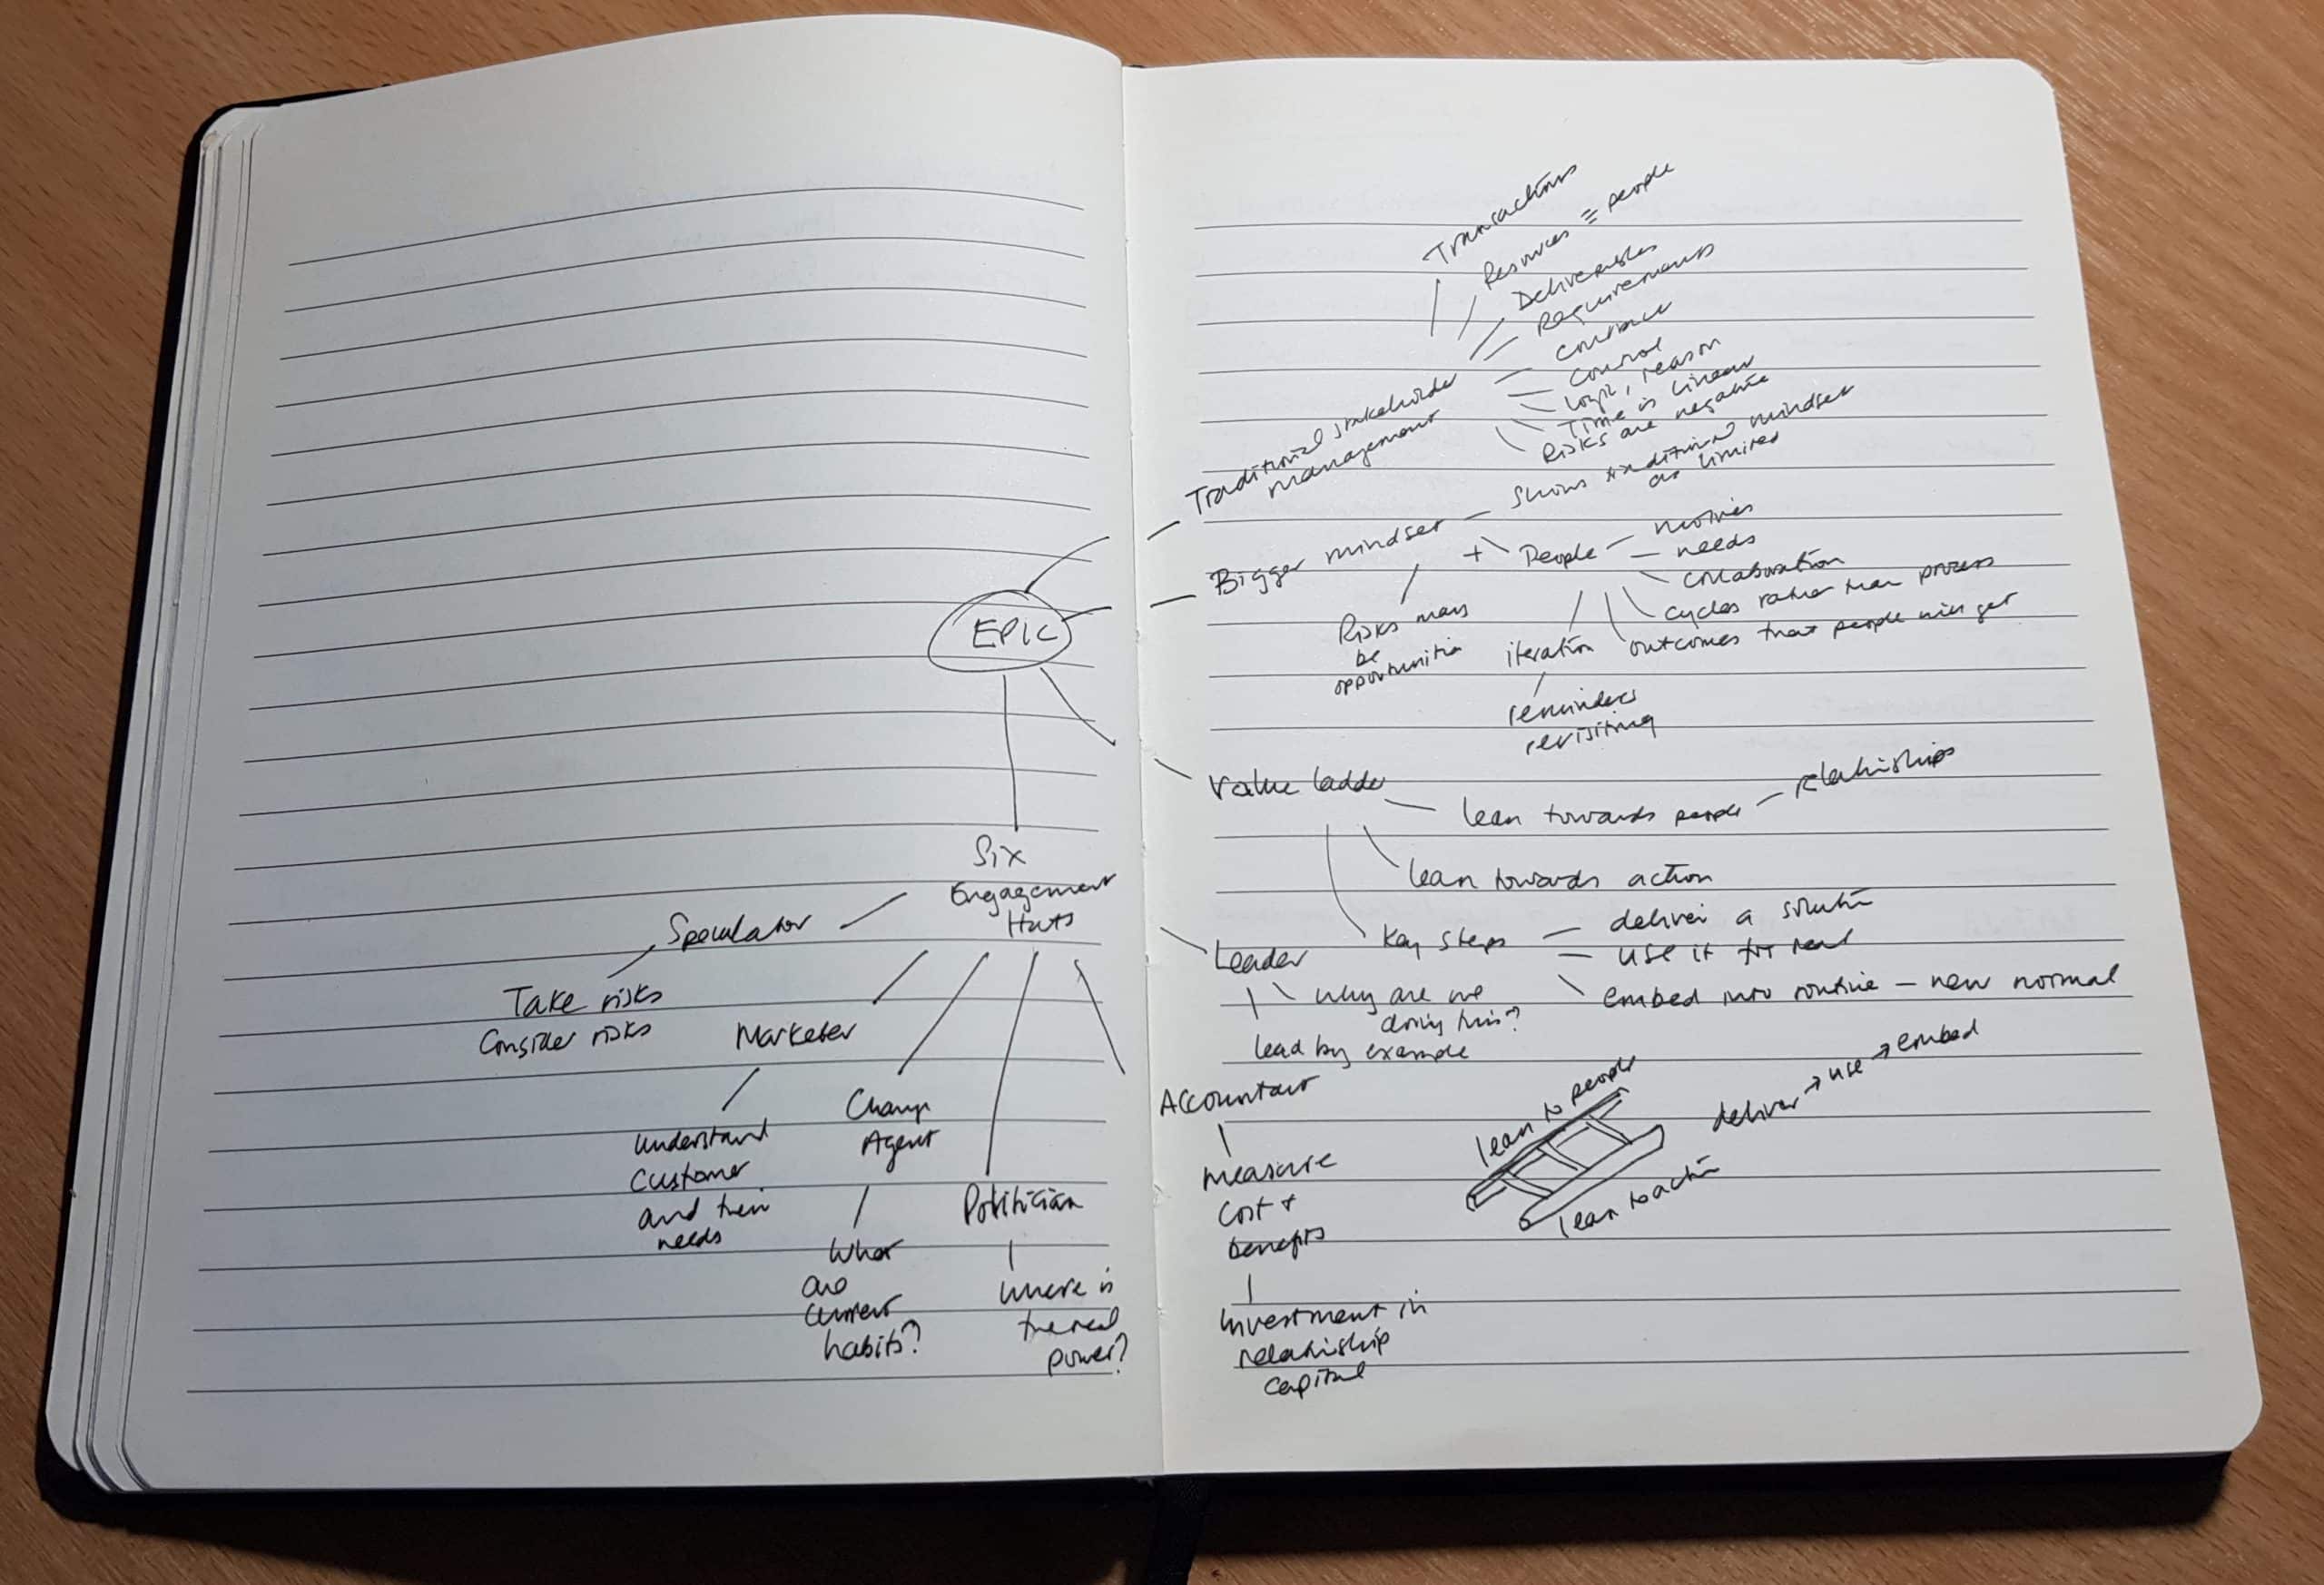 EPIC
Six
Engagement
Hats
Speculator
Take risks
Consider risks
Marketer
understand
customer
and their
needs
Change
Agent
What
are
current
habits?
Politician
where is
the real
power?
Traditional stakeholder
management
Transactions
Resources ≡ people
Deliverables
Requirements
Control
Logic, reason
Time is linear
Risks are negative
Bigger mindset
Shows traditional mindset
as limited
+
People
motives
needs
collaboration
cycles rather than process
outcomes that people will get
iteration
reminders
revisiting
Risks may
be
opportunities
Value ladder
lean towards people
relationships
lean towards action
Key steps
deliver a solution
use it for real
embed into routine – new normal
Leader
Why are we
doing this?
lead by example
Accountant
measure
cost +
benefits
Investment in
relationship
capital
lean to people
lean to action
deliver → use → embed